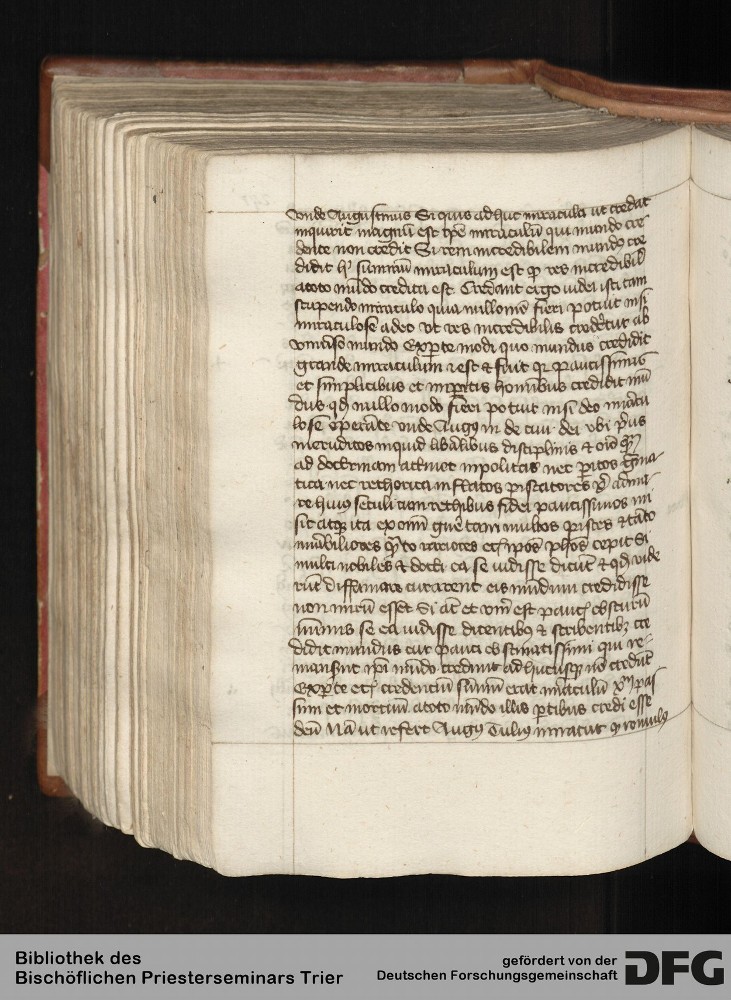 vnde Augustinus Si quis adhuc miracula ut credat
inquirit magnū est ipē miraculū qui mundo cre
dente non credit Si rem incredibilem mundꝰ cre
didit hͦ summū miraculum est qꝫ res incredibil'
a toto mūdo credita est. Credant ergo iudei isti tam
stupendo miraculo quia nullomō fieri potuit nisi
miraculose adeo vt res incredibilis crederetur ab
vniuſo mundo Ex pꝑte modi quo mundus credidit
grande miraculum est & fuit qꝛ paucissimis
et simplicibus et inperitis hominibus credidit mū
dus qd nullo modo fieri potuit nisi deo miracu
lose opꝑante vnde Augꝰ in de ciui. dei vbi pͥus
ineruditos inquid libālibus disciplinis &
ad doctrinam attinet inpolitos nec pꝑitos gͣma
tica nec rethorica inflatos piscatores
re huius seculi cum rethibus fidei paucissimos mi
sit atqꝫ ita ex omni genere tam multos pisces & tāto
mirabiliores qͣnto rariores etiā ipos phos cepit Si
multi nobiles & docti ea se uidisse dicūt & qd vide
rūt diffamare curarent eis mūdum credidisse
non mirū esset Si at et vnū est paucꝭ obscurū
minimis se ea uidisse dicentibꝰ & scribentibꝫ cre
didit mundus cur pauci obstinatissimi qui re-
manserunt ipi mūdo credenti adhucusqꝫ nō credūt
Ex pꝑte etiā credenciū summū erat miraculū xpm pas
sum et mortuum a toto mūdo illis pꝑtibus credi esse
deū Nā ut refert Augꝰ Tulius miratur qꝫ romulꝰ
Bibliothek des
Bischöflichen Priesterseminars Trier
gefördert von der
Deutschen Forschungsgemeinschaft
DFG